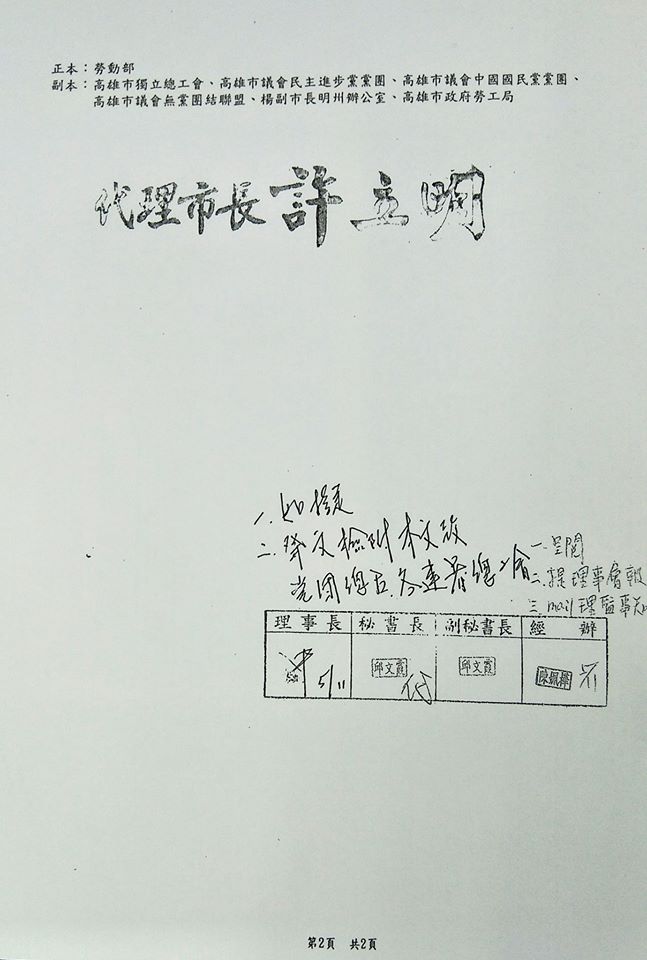 正本：勞動部
副本：高雄市獨立總工會、高雄市議會民主進步黨黨團、高雄市議會中國國民黨黨團、
高雄市議會無黨團結聯盟、楊副市長明州辦公室、高雄市政府勞工局
代理市長 許立明
一、如擬
二、發文檢附本文致
党團總召各連署總工會
一、呈閱
二、提理事會報
三、mail理監事知
理事長 秘書長 副秘書長 經辦
5/11 邱文霞 代 邱文霞
第2頁 共2頁